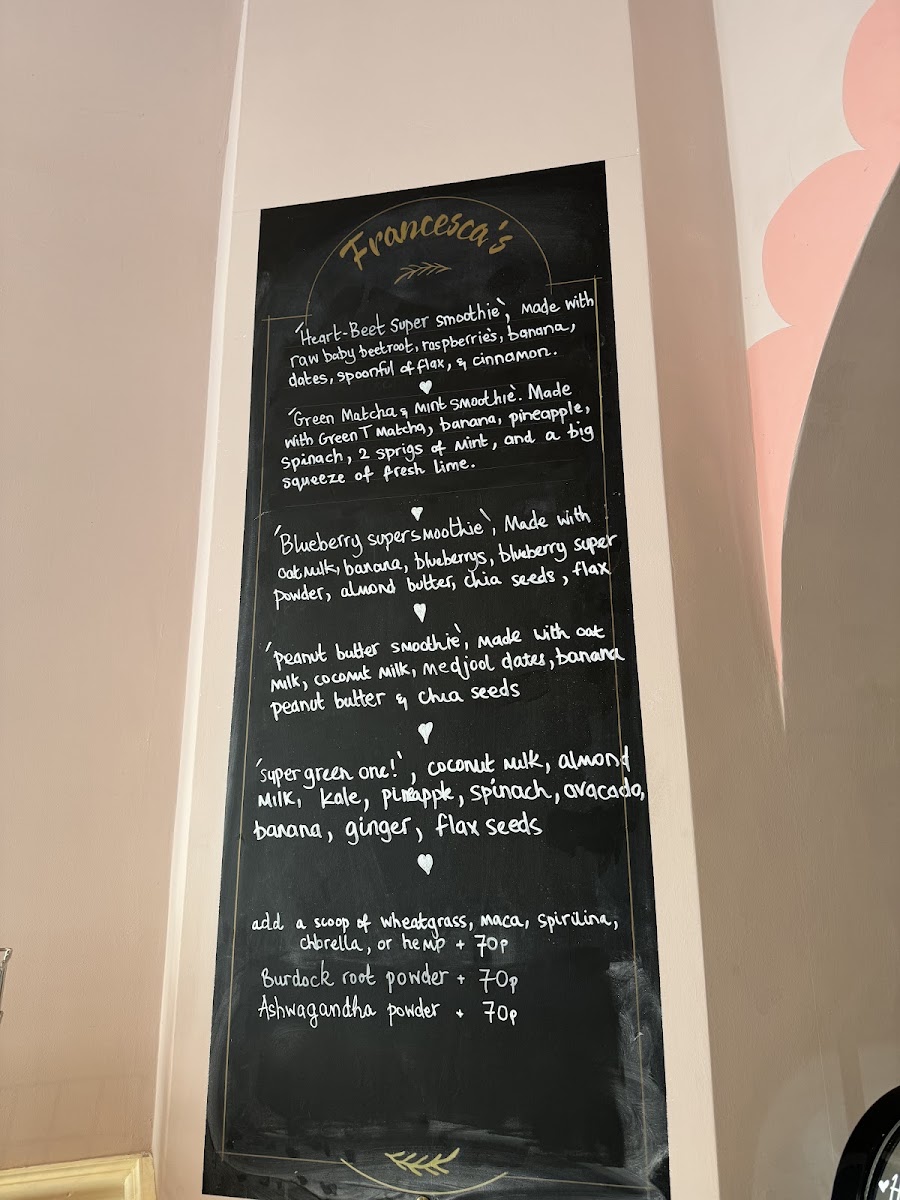 Francesca's
'Heart-Beet Super smoothie', Made with
raw baby beetroot, raspberries, banana,
dates, spoonful of flax, & cinnamon.
'Green Matcha & Mint smoothie'. Made
with Green T Matcha, banana, pineapple,
spinach, 2 sprigs of Mint, and a big
squeeze of fresh lime.
'Blueberry supersmoothie', Made with
oat milk, banana, blueberrys, blueberry super
powder, almond butter, chia seeds, flax
'peanut butter smoothie', Made with oat
milk, coconut milk, medjool dates, banana
peanut butter & chia seeds
'super green one!', coconut milk, almond
milk, kale, pineapple, spinach, avacado,
banana, ginger, flax seeds
add a scoop of wheatgrass, maca, spirilina,
chlorella, or hemp + 70p
Burdock root powder + 70p
Ashwagandha powder + 70p